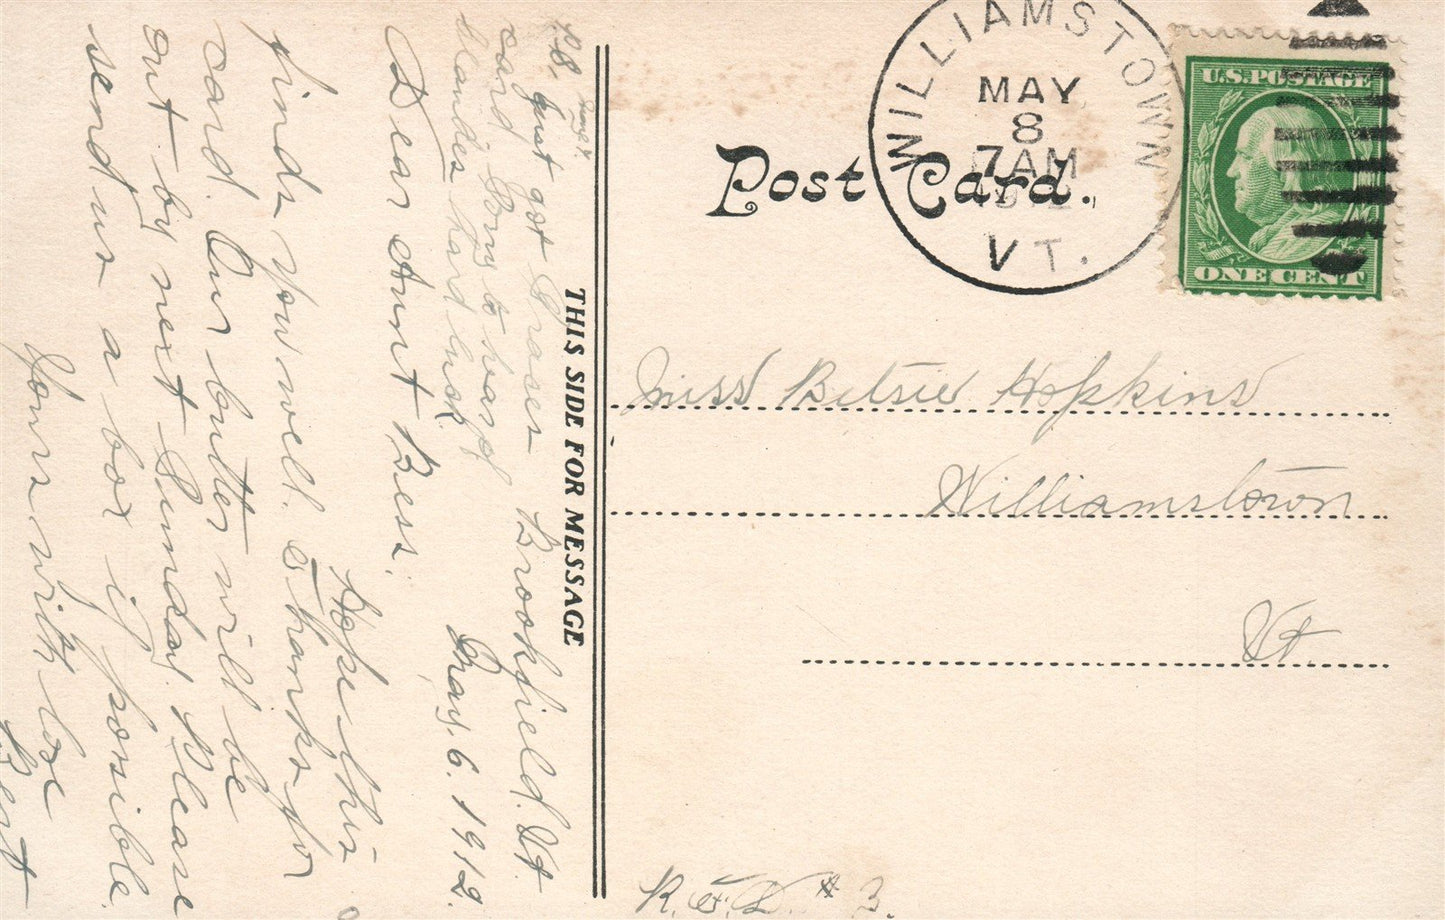 WILLIAMSTOWN
MAY
8
7 AM
VT.
U.S. POSTAGE
ONE CENT
Post Card.
THIS SIDE FOR MESSAGE
Miss Betsie Hopkins
Williamstown
Vt.
R.F.D. # 3.
Brookfield. Vt
May. 6. 1912.
Dear Aunt Bess.
Hope this
finds you well. Thanks for
card. Our butter will be
out by next Sunday. Please
send us a box if possible.
Yours with love
Bert
just got Graces
card Sorry to hear of
Blandes hard luck